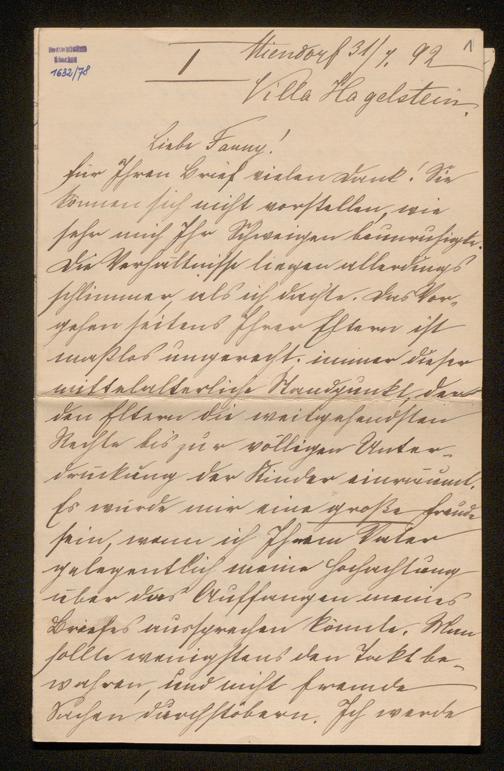 1
1632/78
I
Niendorf 31/7. 92
Villa Hagelstein.
Liebe Fanny!
für Ihren Brief vielen Dank! Sie
können sich nicht vorstellen, wie
sehr mich Ihr Schweigen beunruhigte.
Die Verhältnisse liegen allerdings
schlimmer, als ich dachte. Das Vor-
gehen seitens Ihrer Eltern ist
maßlos ungerecht. immer dieser
mittelalterliche Standpunkt, der
den Eltern die weitgehendsten
Rechte bis zur völligen Unter-
drückung der Kinder einräumt.
Es würde mir eine große Freude
sein, wenn ich Ihrem Vater
gelegentlich meine Hochachtung
über das Auffangen meines
Briefes aussprechen könnte. Man
sollte wenigstens den Takt be-
wahren, und nicht fremde
Sachen durchstöbern. Ich werde